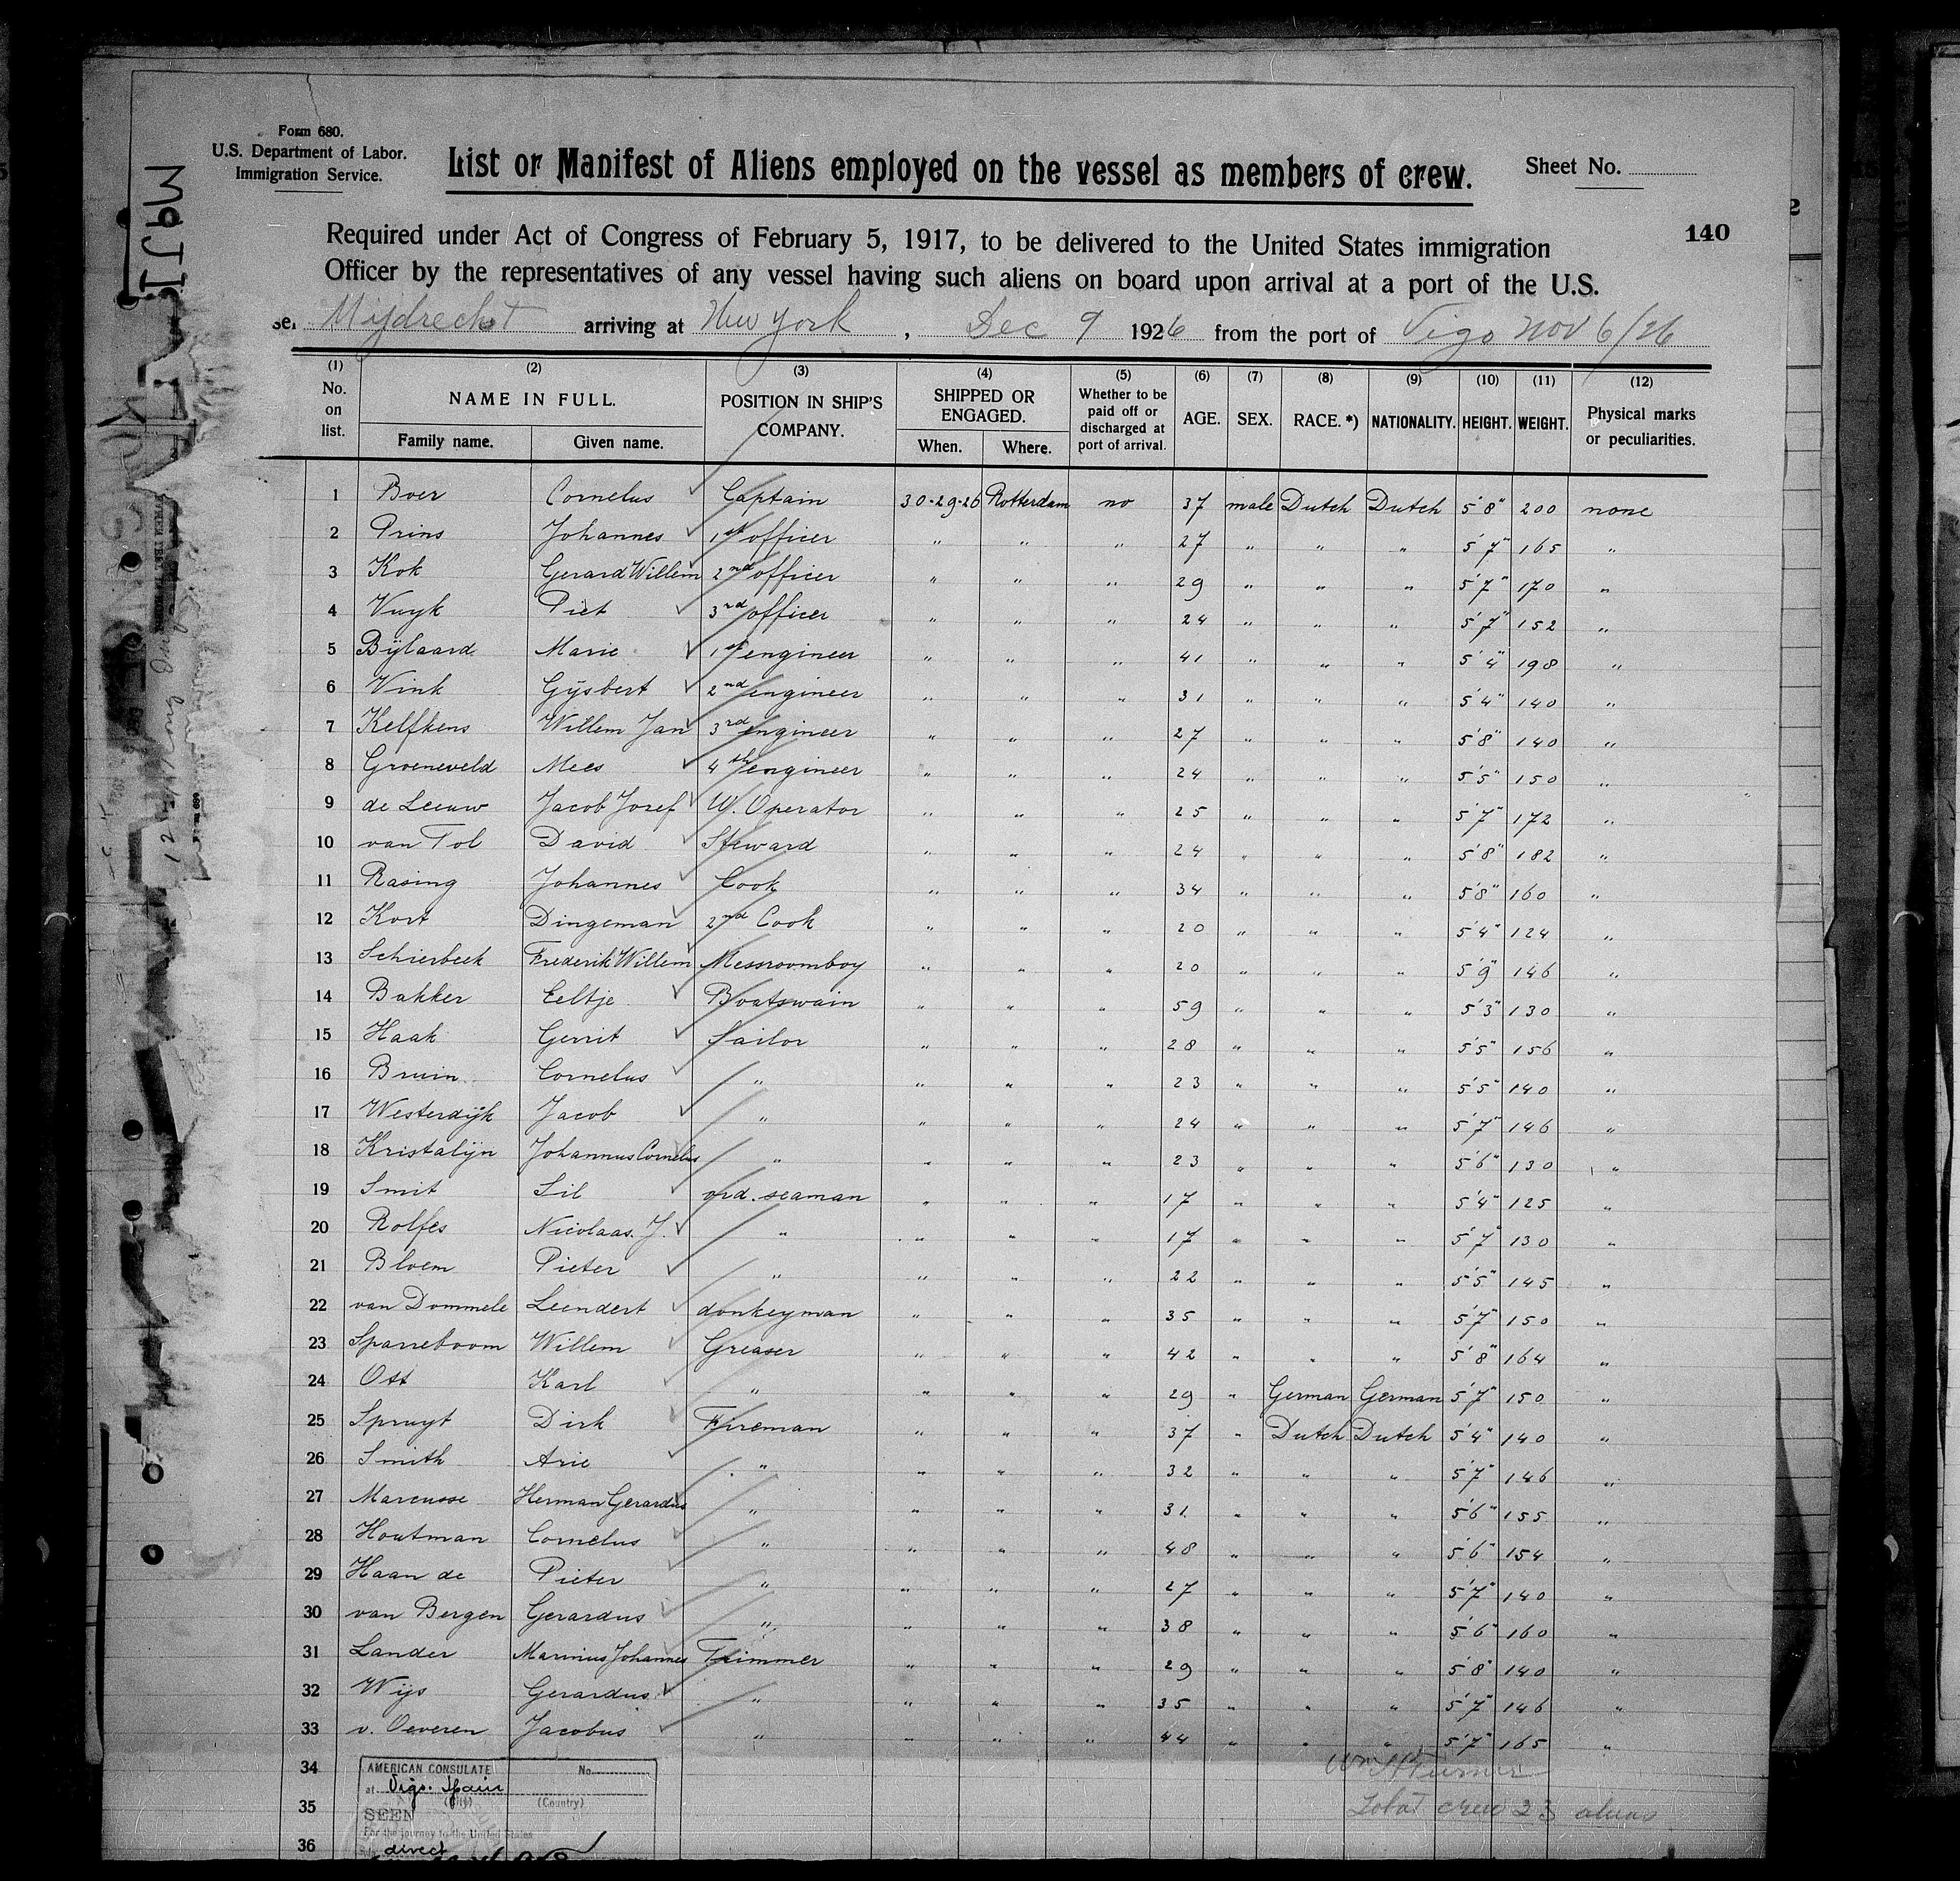 Form 680.
U.S. Department of Labor.
Immigration Service.
List or Manifest of Aliens employed on the vessel as members of crew.
Sheet No.
140
Required under Act of Congress of February 5, 1917, to be delivered to the United States immigration
Officer by the representatives of any vessel having such aliens on board upon arrival at a port of the U.S.
sel Mijdrecht arriving at New York, Dec 9 1926 from the port of Vigo Nov 6/26
(1) (2) (3) (4) (5) (6) (7) (8) (9) (10) (11) (12)
No. on list. NAME IN FULL. POSITION IN SHIP'S COMPANY. SHIPPED OR ENGAGED. Whether to be paid off or discharged at port of arrival. AGE. SEX. RACE. *) NATIONALITY. HEIGHT. WEIGHT. Physical marks or peculiarities.
Family name. Given name. When. Where.
1 Boer Cornelus Captain 30-29-26 Rotterdam no 37 male Dutch Dutch 5'8" 200 none
2 Prins Johannes 1st officer " " " 27 " " " 5'7" 165 "
3 Kok Gerard Willem 2nd officer " " " 29 " " " 5'7" 170 "
4 Vuyk Piet 3rd officer " " " 24 " " " 5'7" 152 "
5 Bijlaard Marie 1st engineer " " " 41 " " " 5'4" 198 "
6 Vink Gijsbert 2nd engineer " " " 31 " " " 5'4" 140 "
7 Kelfkens Willem Jan 3rd engineer " " " 27 " " " 5'8" 140 "
8 Groeneveld Mees 4th engineer " " " 24 " " " 5'5" 150 "
9 de Leeuw Jacob Josef W. Operator " " " 25 " " " 5'7" 172 "
10 van Tol David Steward " " " 24 " " " 5'8" 182 "
11 Rasing Johannes Cook " " " 34 " " " 5'8" 160 "
12 Kort Dingeman 2nd Cook " " " 20 " " " 5'4" 124 "
13 Schierbeek Frederik Willem Messroomboy " " " 20 " " " 5'9" 146 "
14 Bakker Eeltje Boatswain " " " 59 " " " 5'3" 130 "
15 Haak Gerrit Sailor " " " 28 " " " 5'5" 156 "
16 Bruin Cornelus " " " " 23 " " " 5'5" 140 "
17 Westerdijk Jacob " " " " 24 " " " 5'7" 146 "
18 Kristalijn Johannus Cornelus " " " " 23 " " " 5'6" 130 "
19 Smit Sil ord. seaman " " " 17 " " " 5'4" 125 "
20 Rolfes Nicolaas. J. " " " " 17 " " " 5'7 130 "
21 Bloem Pieter " " " " 22 " " " 5'5" 145 "
22 van Dommele Leendert donkeyman " " " 35 " " " 5'7" 150 "
23 Sparreboom Willem Greaser " " " 42 " " " 5'8" 164 "
24 Ott Karl " " " " 29 " German German 5'7" 150 "
25 Spruyt Dirk Fireman " " " 37 " Dutch Dutch 5'4" 140 "
26 Smith Arie " " " " 32 " " " 5'7" 146 "
27 Marcusse Herman Gerardus " " " " 31 " " " 5'6" 155 "
28 Houtman Cornelus " " " " 48 " " " 5'6" 154 "
29 Haan de Pieter " " " " 27 " " " 5'7" 140 "
30 van Bergen Gerardus " " " " 38 " " " 5'6" 160 "
31 Lander Marinus Johannes Trimmer " " " 29 " " " 5'8" 140 "
32 Wijs Gerardus " " " " 35 " " " 5'7" 146 "
33 v. Oeveren Jacobus " " " " 44 " " " 5'7" 165 "
34 Wm H Turner
35 Total crew 23 aliens
36
AMERICAN CONSULATE No.
at Vigo. Spain
(City) (Country)
SEEN
For the journey to the United States
direct